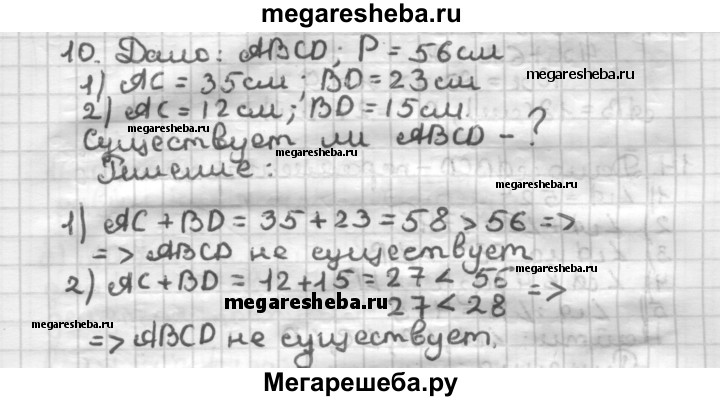 megaresheba.ru
10. Дано: ABCD; P = 56 см
1) AC = 35 см; BD = 23 см
megaresheba.ru
2) AC = 12 см; BD = 15 см.
megaresheba.ru
Существует ли ABCD - ?
megaresheba.ru
Решение:
megaresheba.ru
1) AC + BD = 35 + 23 = 58 > 56 =>
=> ABCD не существует
2) AC + BD = 12 + 15 = 27 < 56
megaresheba.ru
27 < 28 =>
megaresheba.ru
megaresheba.ru
=> ABCD не существует.
Мегарешеба.ру